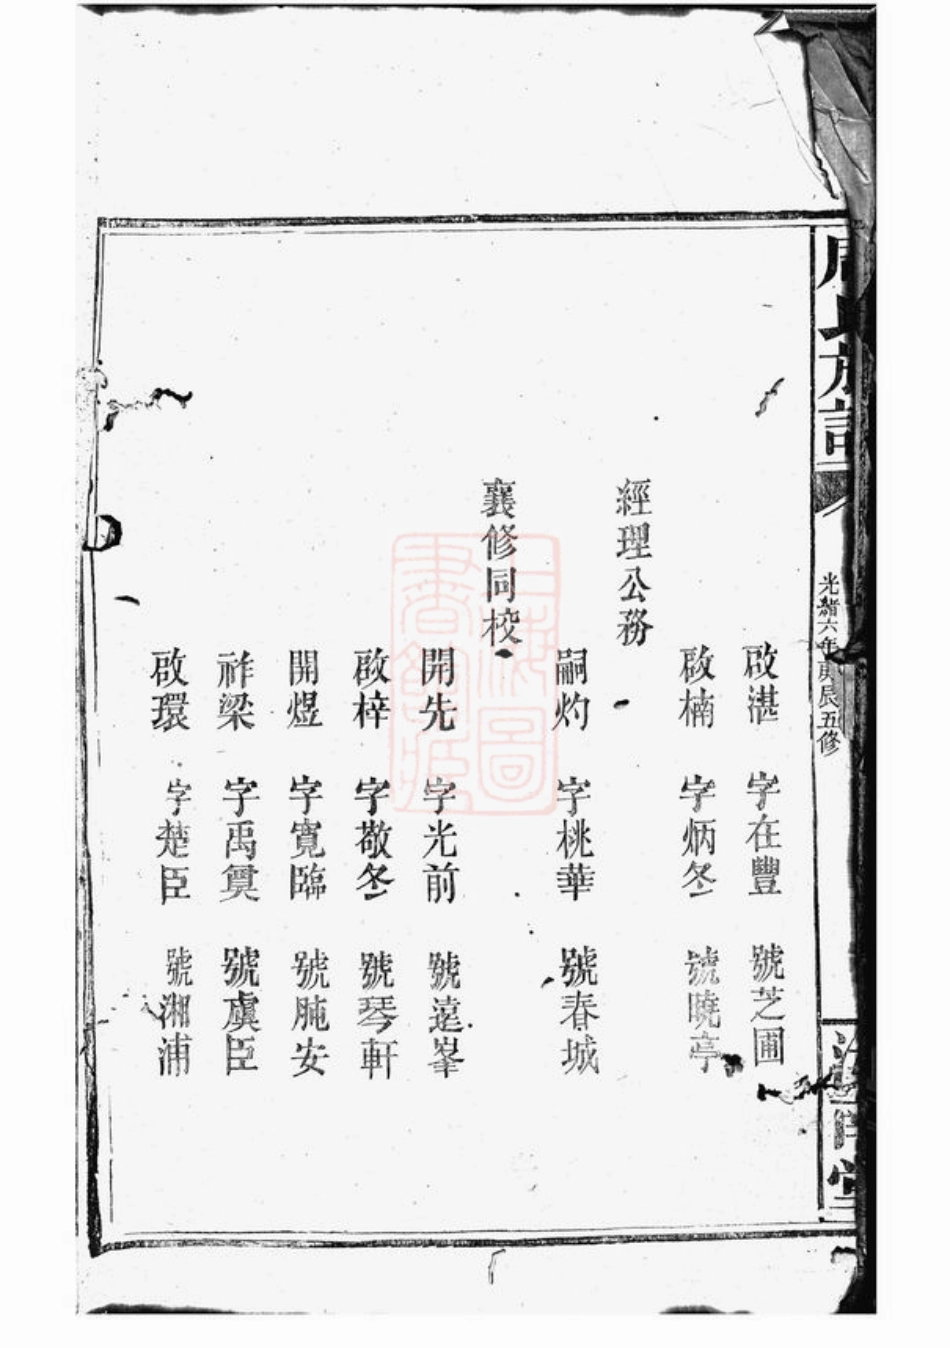 周氏族譜
光緒六年庚辰五修
堂
啟湛 字在豐 號芝圃
啟楠 字炳冬 號曉亭
經理公務
嗣灼 字桃華 號春城
襄修同校
開先 字光前 號遠峯
啟梓 字敬冬 號琴軒
開煜 字寬臨 號肫安
祚梁 字禹奠 號虞臣
啟環 字楚臣 號湘浦
上海圖書館藏